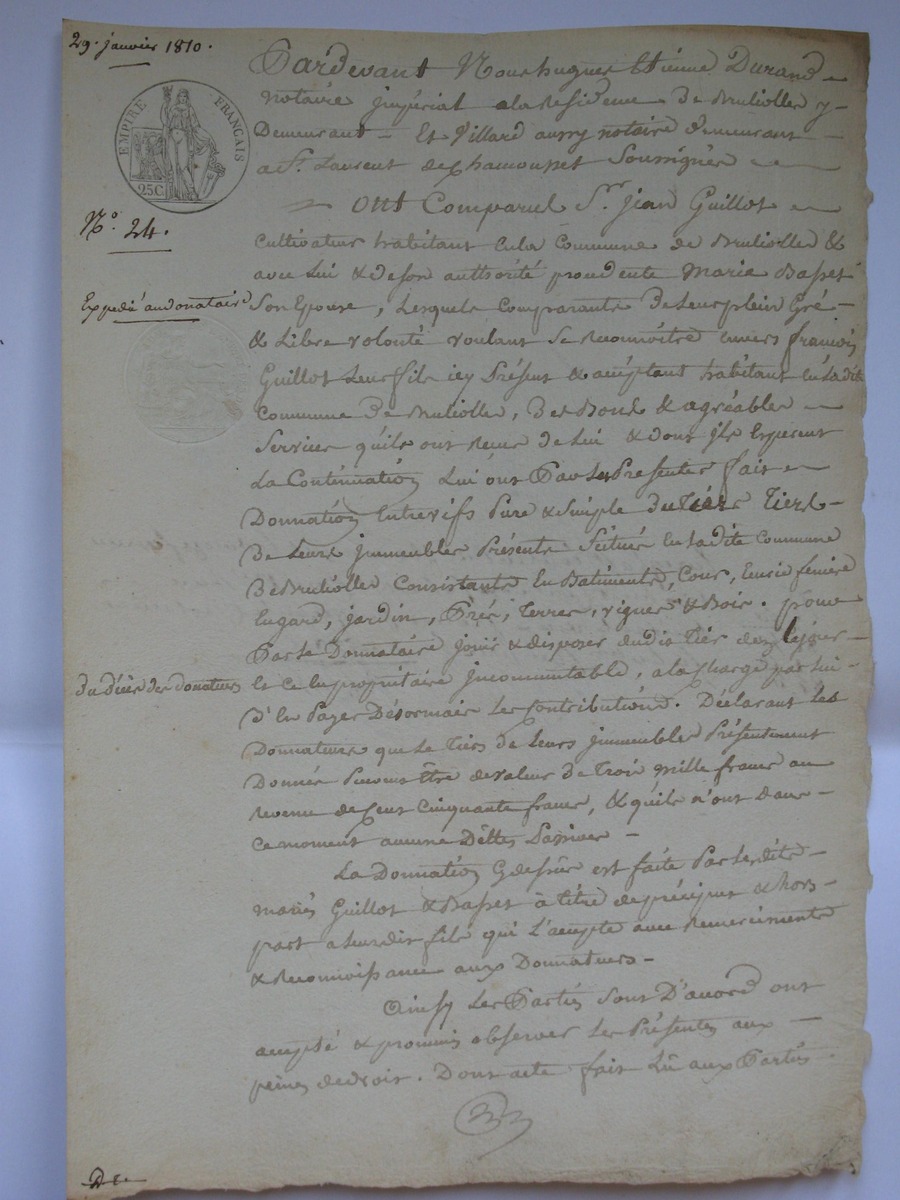 29. janvier 1810.
EMPIRE FRANÇAIS
25C.
N.° 24.
Expedié au donataire
Pardevant Nous hugues Etienne Durand
notaire jmpérial a la Residence de Brulliolles y
Demeurant - Et Villard aussy notaire demeurant
a St. Laurent de Chamousset Soussignés
Ont Comparus Sr. jean Guillot
Cultivateur habitant en la Commune de Brulliolles &
avec Lui & de son authorité procédente Marie Basset
Son Epouse, Lesquels Comparants de Leur plein Gré
& Libre volonté voulant se Reconnoitre envers francois
Guillot Leur fils icy Présent & acceptant habitant en Ladite
Commune De Brulliolles, Des Bons & agréables
Services qu'ils ont Recus de Lui & dont jls Esperent
La Continuation Lui ont Par les Présentes fait
Donnation Entrevifs Pure & Simple du Tiers
De Leurs jmmeubles Présents Scitués en Ladite Commune
De Brulliolles Consistants En Batiments, Cour,
jardin, Prés, Terres, vignes & Bois. pour
Par Le Donnataire jouir & disposer dudit Tiers
du décès des donateurs
Et Ce En propriétaire jncommutable, a la Charge par Lui
D'En Payer Désormais Les Contributions. Déclarant Les
Donnateurs que Le Tiers de Leurs jmmeubles Présentement
Donnés Peuvent Être de valeur de Trois mille francs au
Revenu de Cent Cinquante francs, & qu'ils n'ont dans
Ce moment aucune Dêttes Passives -
La Donnation Cy dessus est faite Par Lesdits
mariés Guillot & Basset à titre de préciput & hors
part a Leurdit fils qui L'accepte avec Remerciments
& Reconnoissance aux Donnateurs -
Ainsy Les Parties Sont D'accord ont
accepté & promis observer Les Présentes aux
peines de droit. Dont acte fait Lû aux Parties